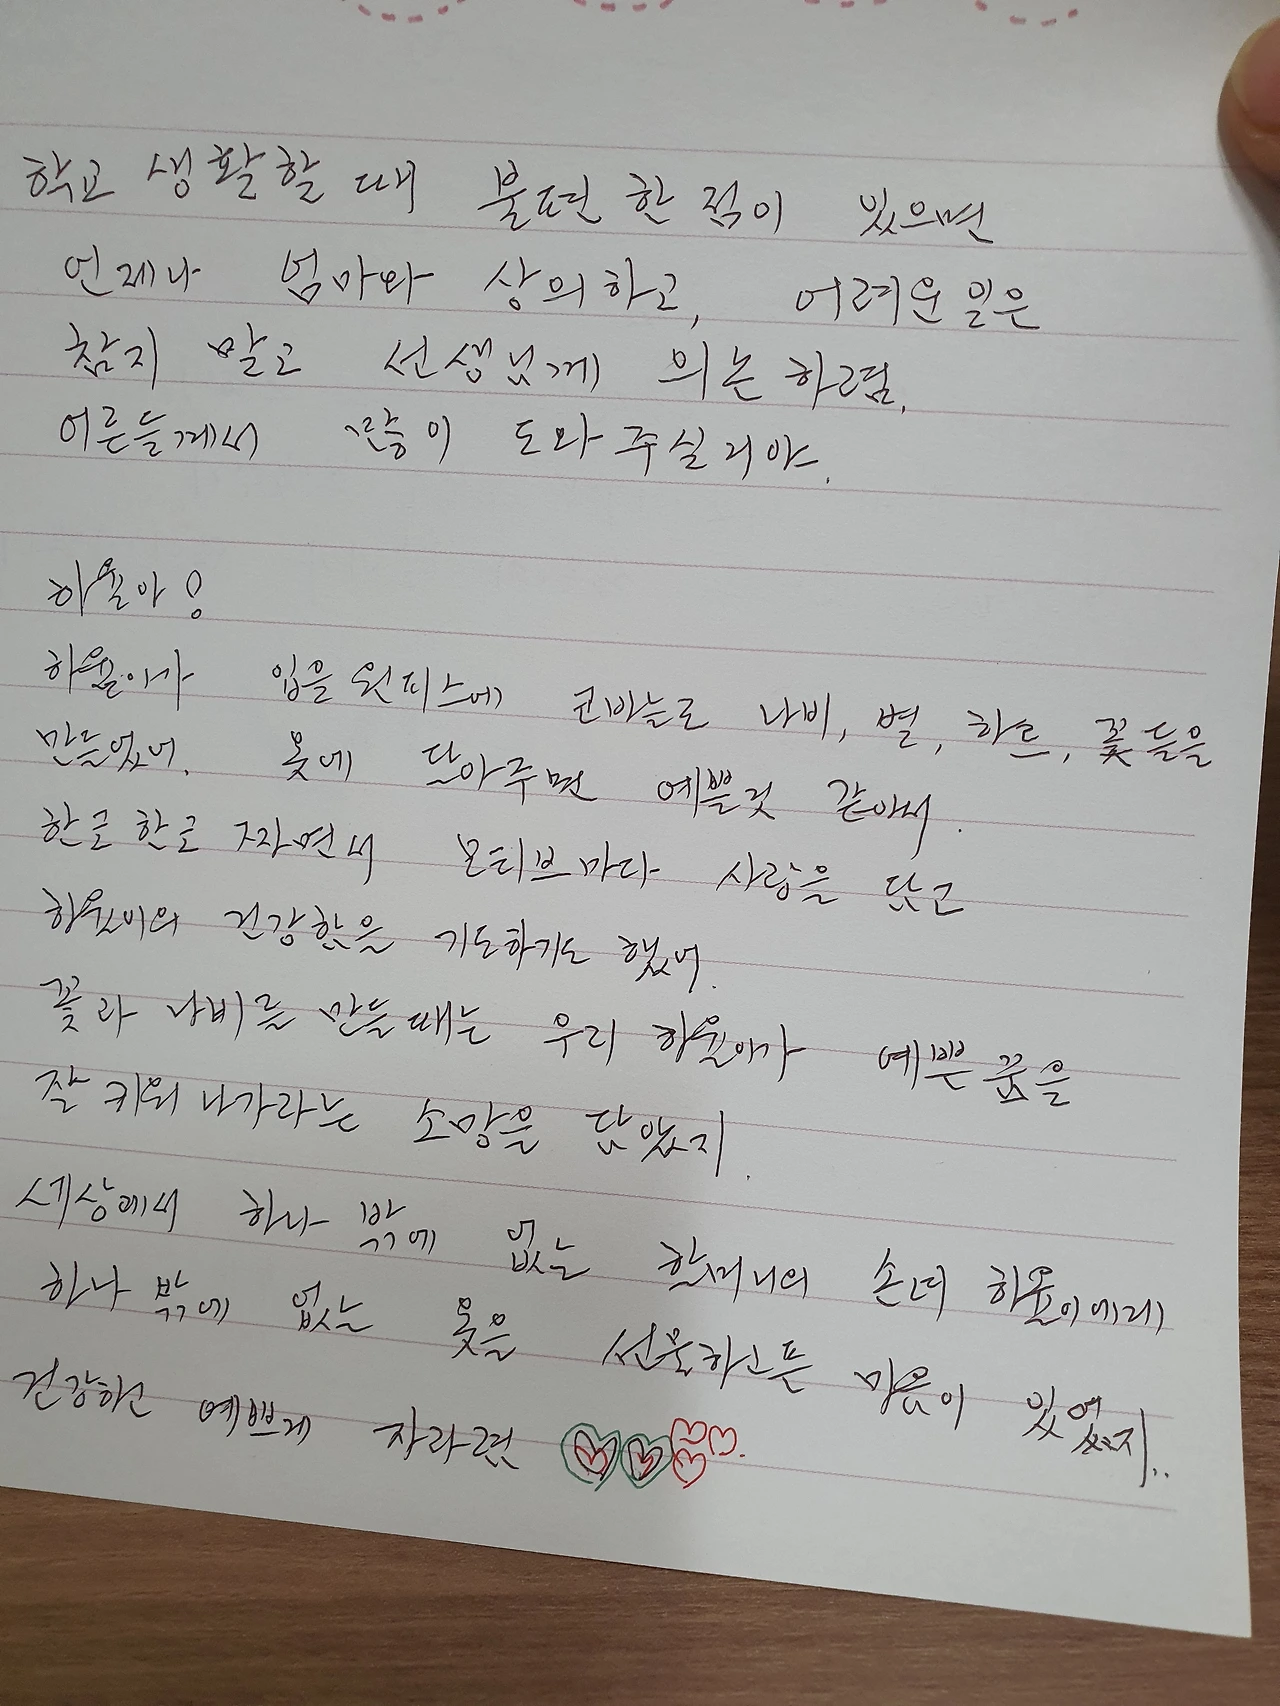 학교 생활할 때 불편한 점이 있으면
언제나 엄마와 상의하고, 어려운일은
참지 말고 선생님께 의논하렴.
어른들께서 많이 도와주실거야.
하율아!
하율이가 입을 원피스에 코바늘로 나비, 별, 하트, 꽃들을
만들었어. 옷에 달아주면 예쁠것 같아서.
한코한코 짜면서 모티브마다 사랑을 담고
하율이의 건강함을 기도하기도 했어.
꽃과 나비를 만들때는 우리 하율이가 예쁜꿈을
잘 키워나가라는 소망을 담았지.
세상에서 하나 밖에 없는 할머니의 손녀 하율이에게
하나 밖에 없는 옷을 선물하고픈 마음이 있었지..
건강하고 예쁘게 자라렴